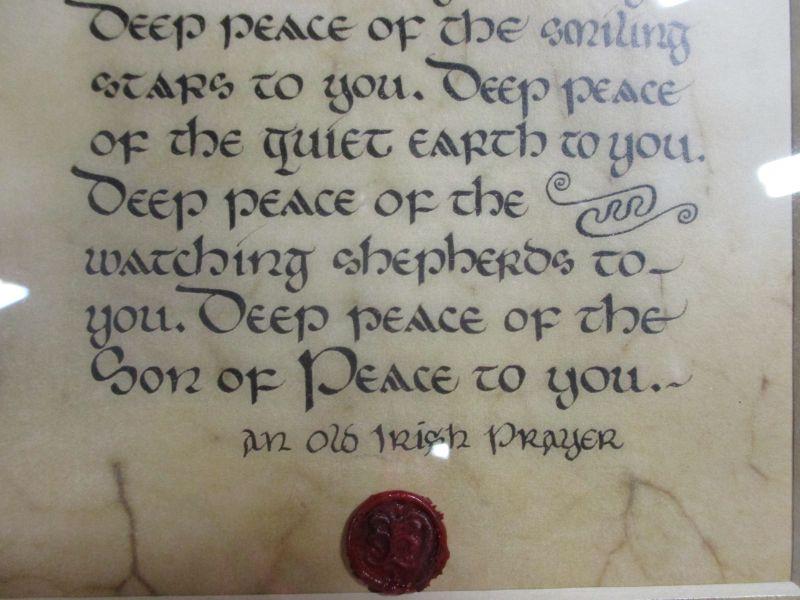 Deep peace of the smiling
stars to you. Deep peace
of the quiet earth to you.
Deep peace of the
watching shepherds to
you. Deep peace of the
Son of Peace to you.~
an Old Irish Prayer